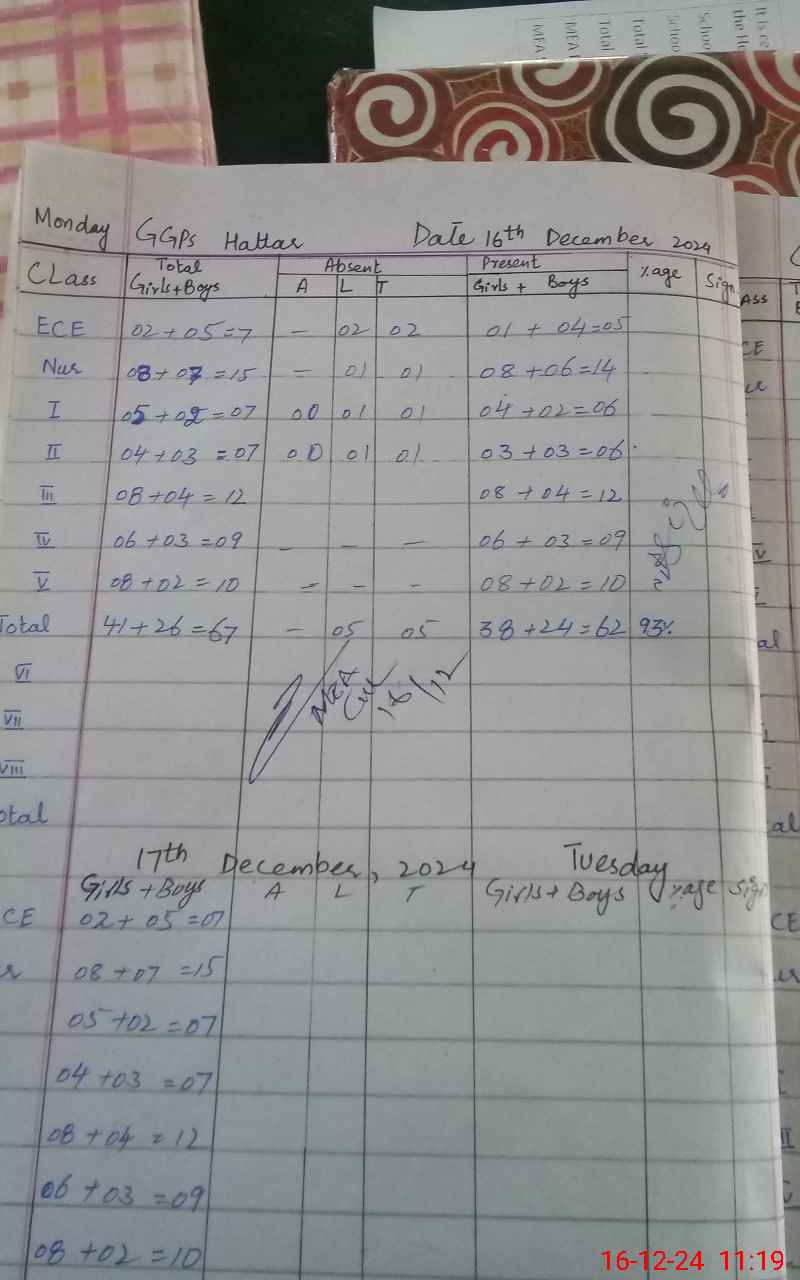 It is ce
the He
Schoo
Schoo
Total
Total
MEA
MEA
Monday GGPS Hattar Date 16th December 2024
Class Total Absent Present %age Sign
Girls+Boys A L T Girls + Boys
ECE 02 + 05=7 — 02 02 01 + 04=05
Nur 08+07=15 — 01 01 08+06=14
I 05+02=07 00 01 01 04+02=06
II 04+03=07 00 01 01 03+03=06
III 08+04=12 08+04=12
IV 06+03=09 — — — 06+03=09
V 08+02=10 - - - 08+02=10
Total 41+26=67 — 05 05 38+24=62 93%
VI
MEA
16/12
VII
VIII
otal
17th December, 2024 Tuesday
Girls+Boys A L T Girls+Boys %age Sign
CE 02+05=07
08+07=15
05+02=07
04+03=07
08+04=12
06+03=09
08+02=10
16-12-24 11:19